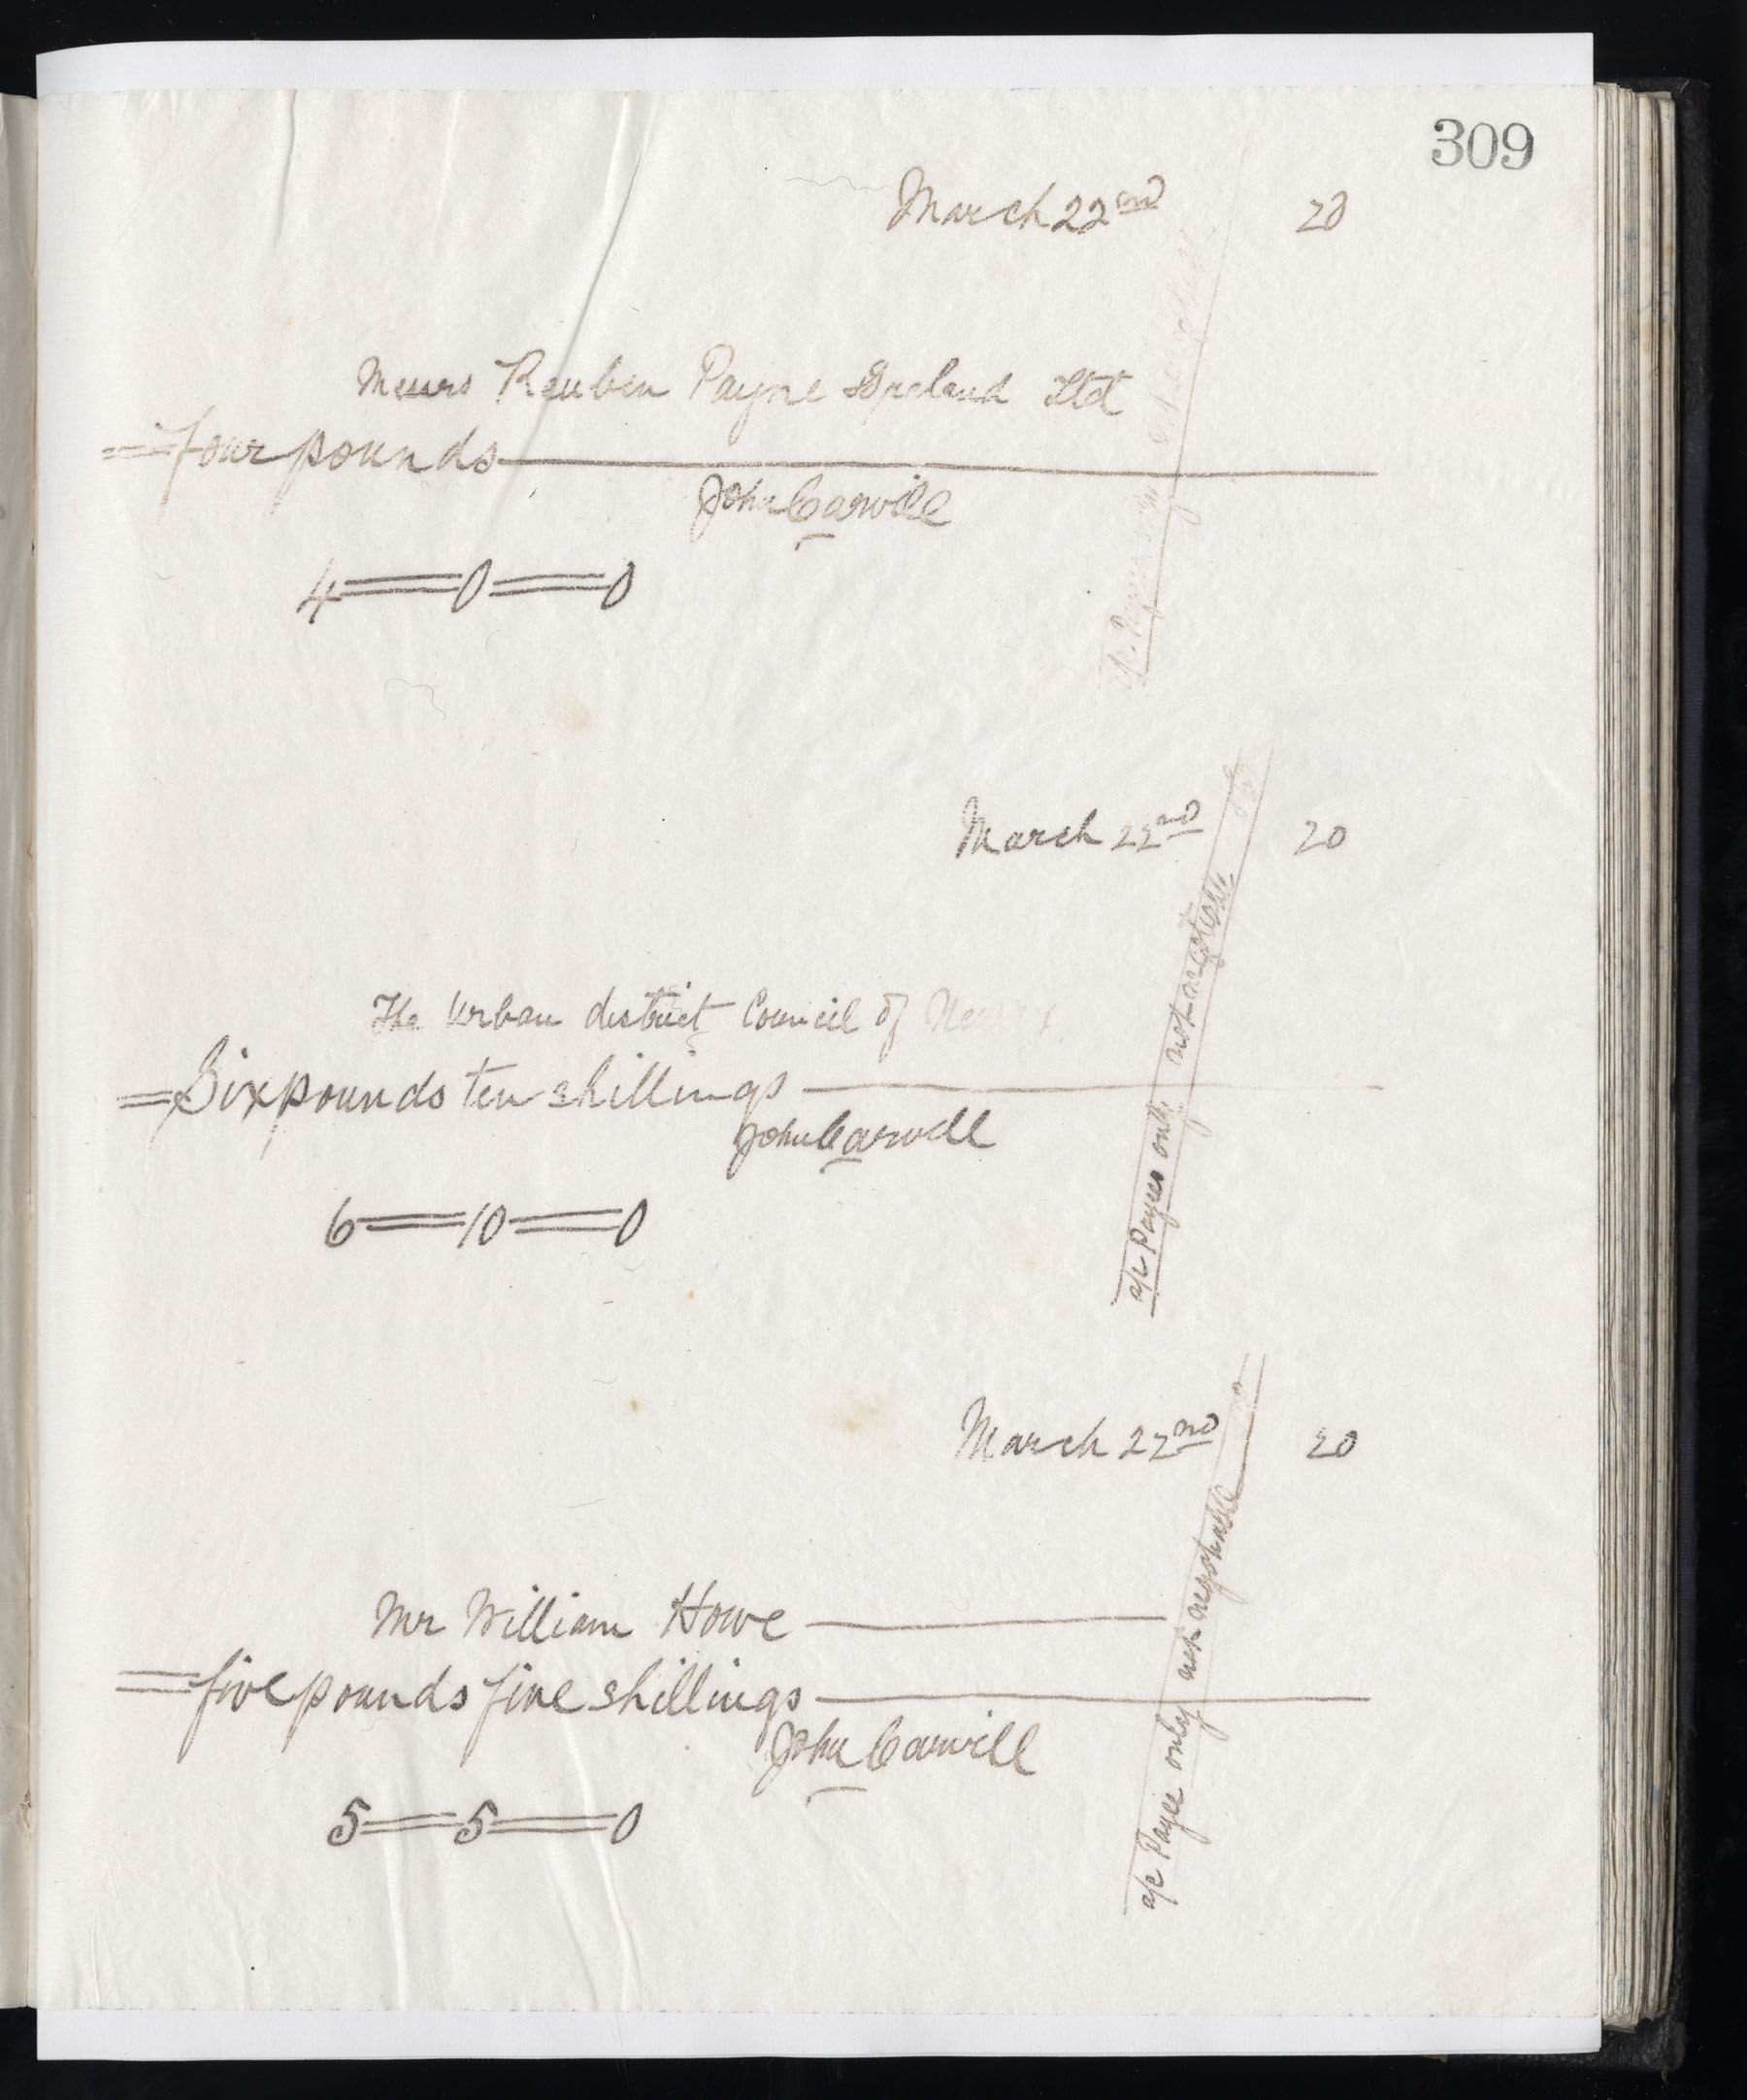 309
March 22nd 20
Messrs Reuben Payne & Ireland Ltd
= four pounds
John Carvill
4 = 0 = 0
a/c Payees only
March 22nd 20
The Urban district Council of
= Six pounds ten shillings
John Carvill
6 = 10 = 0
a/c Payees only not negotiable
March 22nd 20
Mr William Howe
= five pounds five shillings
John Carvill
5 = 5 = 0
a/c Payee only not negotiable